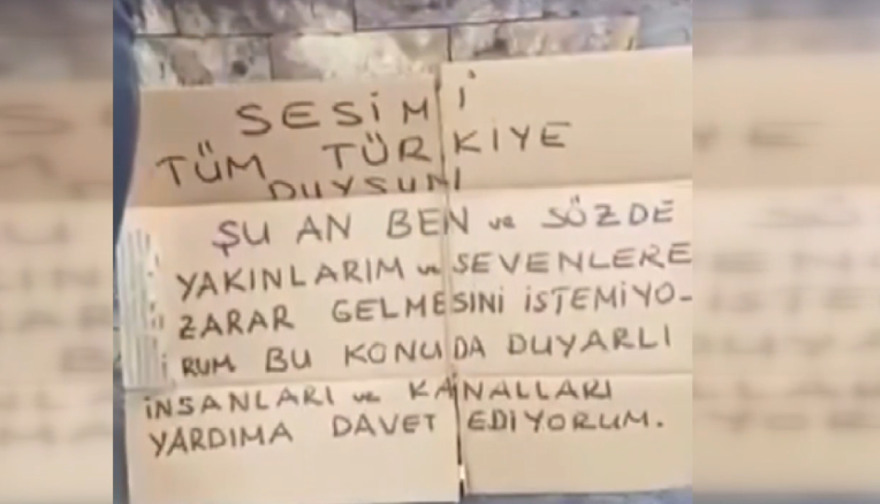 SESİMİ
TÜM TÜRKİYE
DUYSUN!
ŞU AN BEN ve SÖZDE
YAKINLARIM ve SEVENLERE
ZARAR GELMESİNİ İSTEMİYO-
RUM BU KONUDA DUYARLI
İNSANLARI ve KANALLARI
YARDIMA DAVET EDİYORUM.